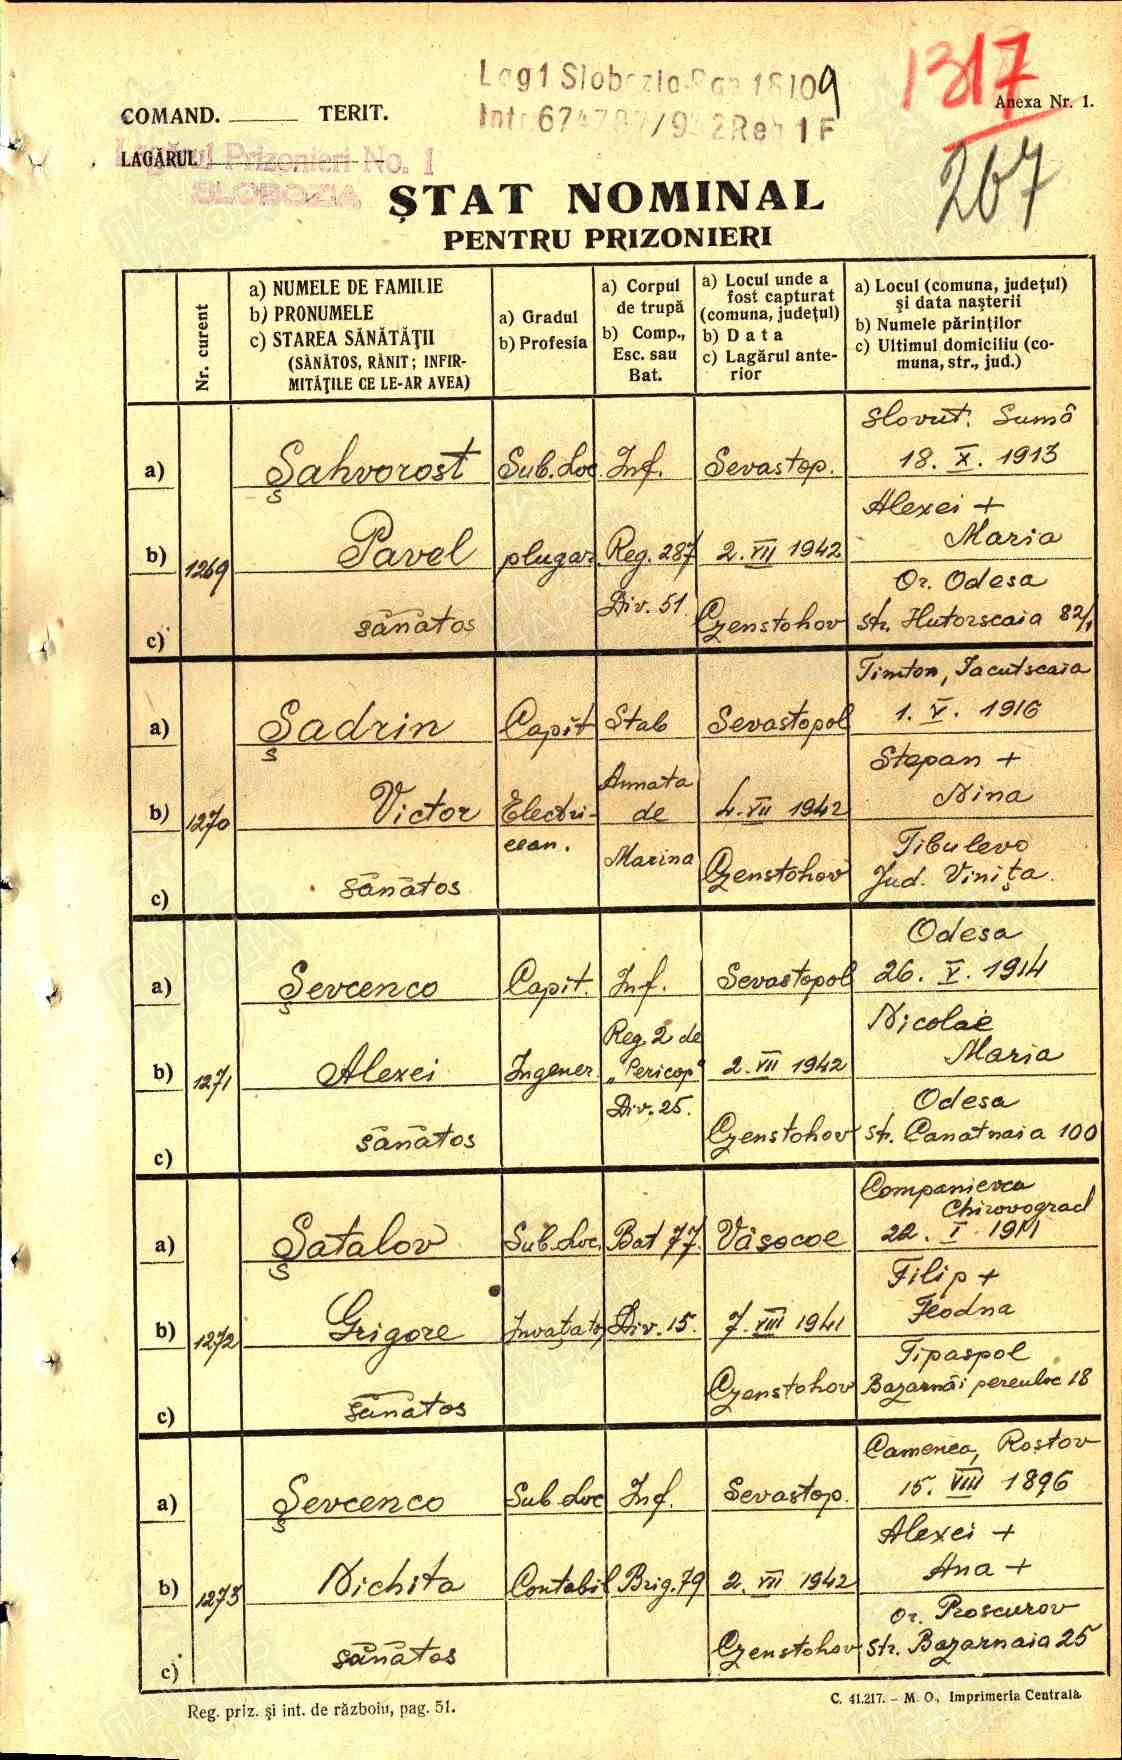 Lag 1 Slobozia
1317
COMAND. TERIT.
Anexa Nr. 1.
LAGĂRUL
Lagărul Prizonieri No. 1
SLOBOZIA
267
ȘTAT NOMINAL
PENTRU PRIZONIERI
Nr. curent
a) NUMELE DE FAMILIE
b) PRONUMELE
c) STAREA SĂNĂTĂȚII
(SĂNĂTOS, RĂNIT; INFIR-
MITĂȚILE CE LE-AR AVEA)
a) Gradul
b) Profesia
a) Corpul
de trupă
b) Comp.,
Esc. sau
Bat.
a) Locul unde a
fost capturat
(comuna, județul)
b) Data
c) Lagărul ante-
rior
a) Locul (comuna, județul)
și data nașterii
b) Numele părinților
c) Ultimul domiciliu (co-
muna, str., jud.)
1269
a) Șahvorost
b) Pavel
c) sănătos
Sub. Loc.
plugar
Inf.
Reg. 287
Div. 51.
Sevastop.
2. VII 1942
Czenstohov
Slovut. Sumâ
18. X. 1913
Alexei +
Maria
Or. Odesa
str. Hutorscaia 82/1
1270
a) Șadrin
b) Victor
c) sănătos
Capit
Electri-
cean.
Stab
Armata
de
Marina
Sevastopol
4. VII 1942
Czenstohov
Timton, Iacutscaia
1. V. 1916
Stepan +
Nina
Tibulevo
Jud. Vinița
1271
a) Șevcenco
b) Alexei
c) sănătos
Capit.
Ingener
Inf.
Reg. 2 de
„Pericop"
Div. 25.
Sevastopol
2. VII 1942
Czenstohov
Odesa
26. V. 1914
Nicolae
Maria
Odesa
str. Canatnaia 100
1272
a) Șatalov
b) Grigore
c) sănătos
Sub. Loc.
Invațator
Bat 77.
Div. 15.
Vâsocoe
7. VIII 1941
Czenstohov
Companievca
Chirovograd
22. I. 1911
Filip +
Feodna
Tipaspol
Bazarnâi pereuloc 18
1273
a) Șevcenco
b) Nichita
c) sănătos
Sub. Loc
Contabil
Inf.
Brig. 79
Sevastop.
2. VII 1942
Czenstohov
Camenca, Rostov
15. VIII 1896
Alexei +
Ana +
or. Proscurov
str. Bazarnaia 25
Reg. priz. și int. de război, pag. 51.
C. 41.217. – M. O., Imprimeria Centrală